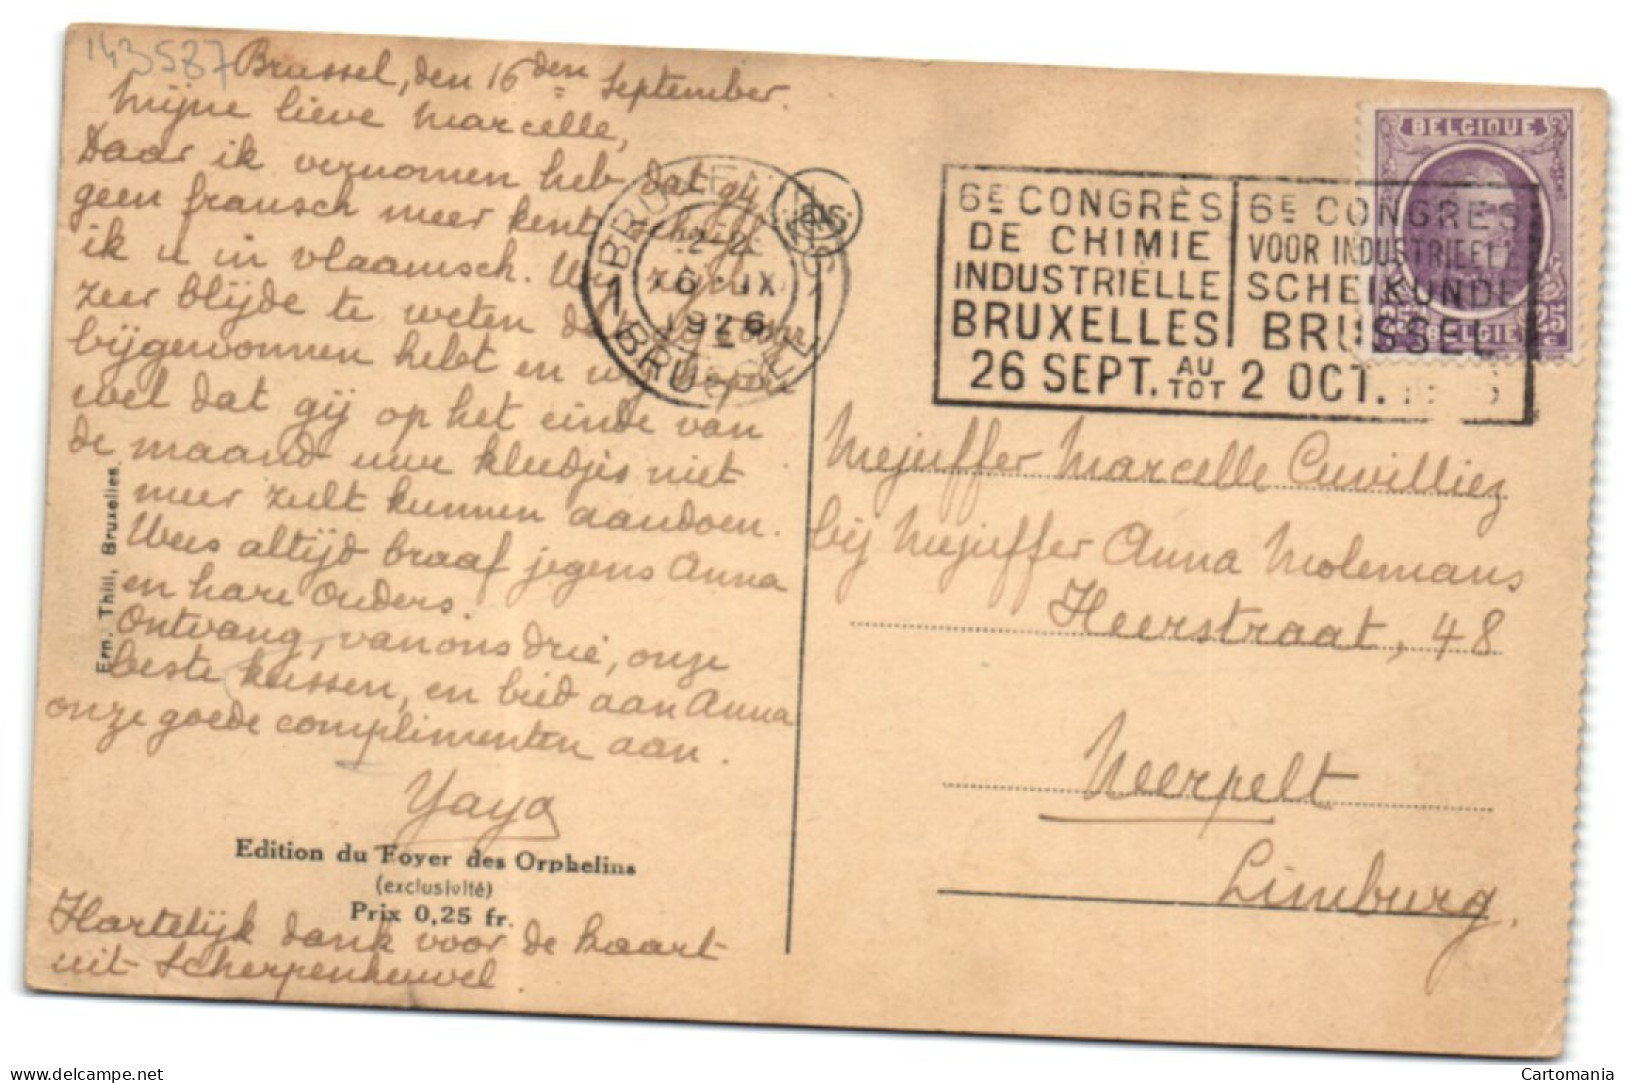 143587
Brussel, den 16 den September.
Mijne lieve Marcelle,
Daar ik vernomen heb dat gij
geen fransch meer kent schrijf
ik u in vlaamsch. Wij zijn
zeer blijde te weten dat gij
bijgewonnen hebt en wij hopen
wel dat gij op het einde van
de maand uwe kleedjes niet
meer zult kunnen aandoen.
Wees altijd braaf jegens Anna
en hare ouders.
Ontvang, van ons drie, onze
beste kussen, en bied aan Anna
onze goede complimenten aan.
Yaya
Edition du Foyer des Orphelins
(exclusivité)
Prix 0,25 fr.
Hartelijk dank voor de kaart
uit Scherpenheuvel.
Ern. Thill, Bruxelles
1 BRUXELLES 1 BRUSSEL
IX
1926
6E CONGRÈS
DE CHIMIE
INDUSTRIELLE
BRUXELLES
26 SEPT. AU
TOT 2 OCT.
6E CONGRES
VOOR INDUSTRIEELE
SCHEIKUNDE
BRUSSEL
BELGIQUE
25 25
BELGIE
Mejuffer Marcelle Cuvilliez
bij Mejuffer Anna Molemans
Heerstraat, 48
Neerpelt
Limburg.
Cartomania